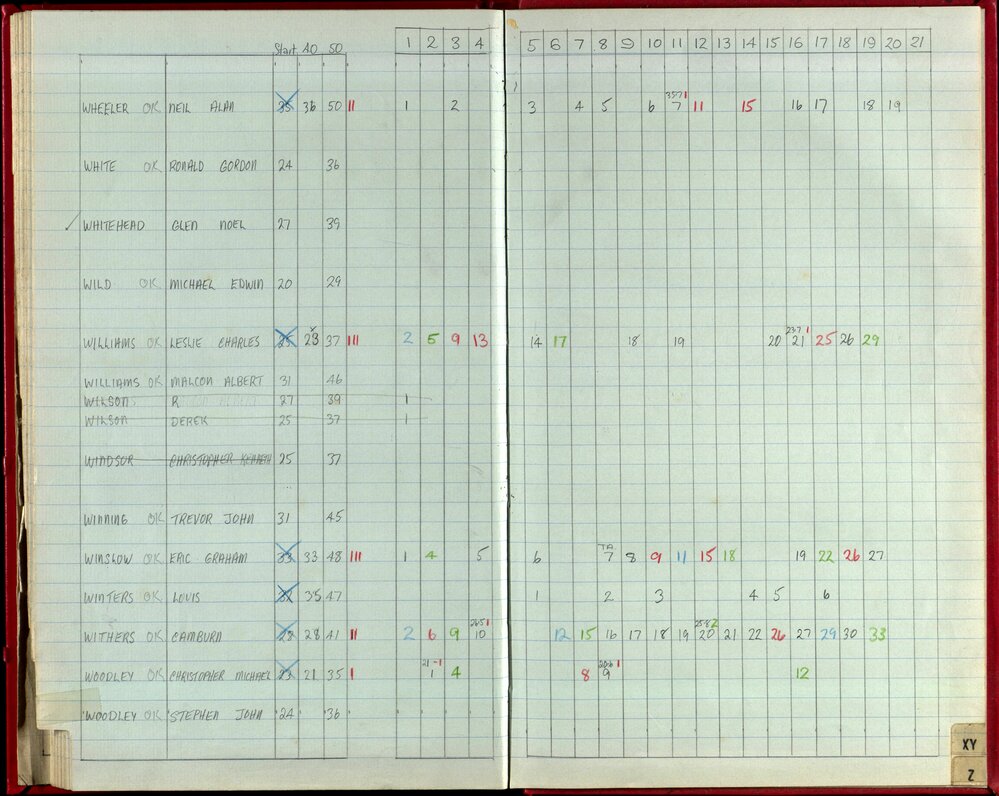 Start 40 50 1 2 3 4 5 6 7 8 9 10 11 12 13 14 15 16 17 18 19 20 21
WHEELER OK NEIL ALAN 35 36 50 11 1 2 3 4 5 6 35-7 1 7 11 15 16 17 18 19
WHITE OK RONALD GORDON 24 36
✓ WHITEHEAD GLEN NOEL 27 39
WILD OK MICHAEL EDWIN 20 29
WILLIAMS OK LESLIE CHARLES 25 23 37 111 2 5 9 13 14 17 18 19 20 23-7 1 21 25 26 29
WILLIAMS OK MALCON ALBERT 31 46
WILSON R 27 39 1
WILSON DEREK 25 37 1
WINDSOR CHRISTOPHER KENNETH 25 37
WINNING OK TREVOR JOHN 31 45
WINSLOW OK ERIC GRAHAM 33 33 48 111 1 4 5 6 TA 7 8 9 11 15 18 19 22 26 27
WINTERS OK LOUIS 35 47 1 2 3 4 5 6
WITHERS OK CAMBURN 28 41 11 2 6 9 26-5 1 10 12 15 16 17 18 19 25-8 2 20 21 22 26 27 29 30 33
WOODLEY OK CHRISTOPHER MICHAEL 23 21 35 1 21 - 1 1 4 8 20-6 1 9 12
WOODLEY OK STEPHEN JOHN 24 36
XY
Z